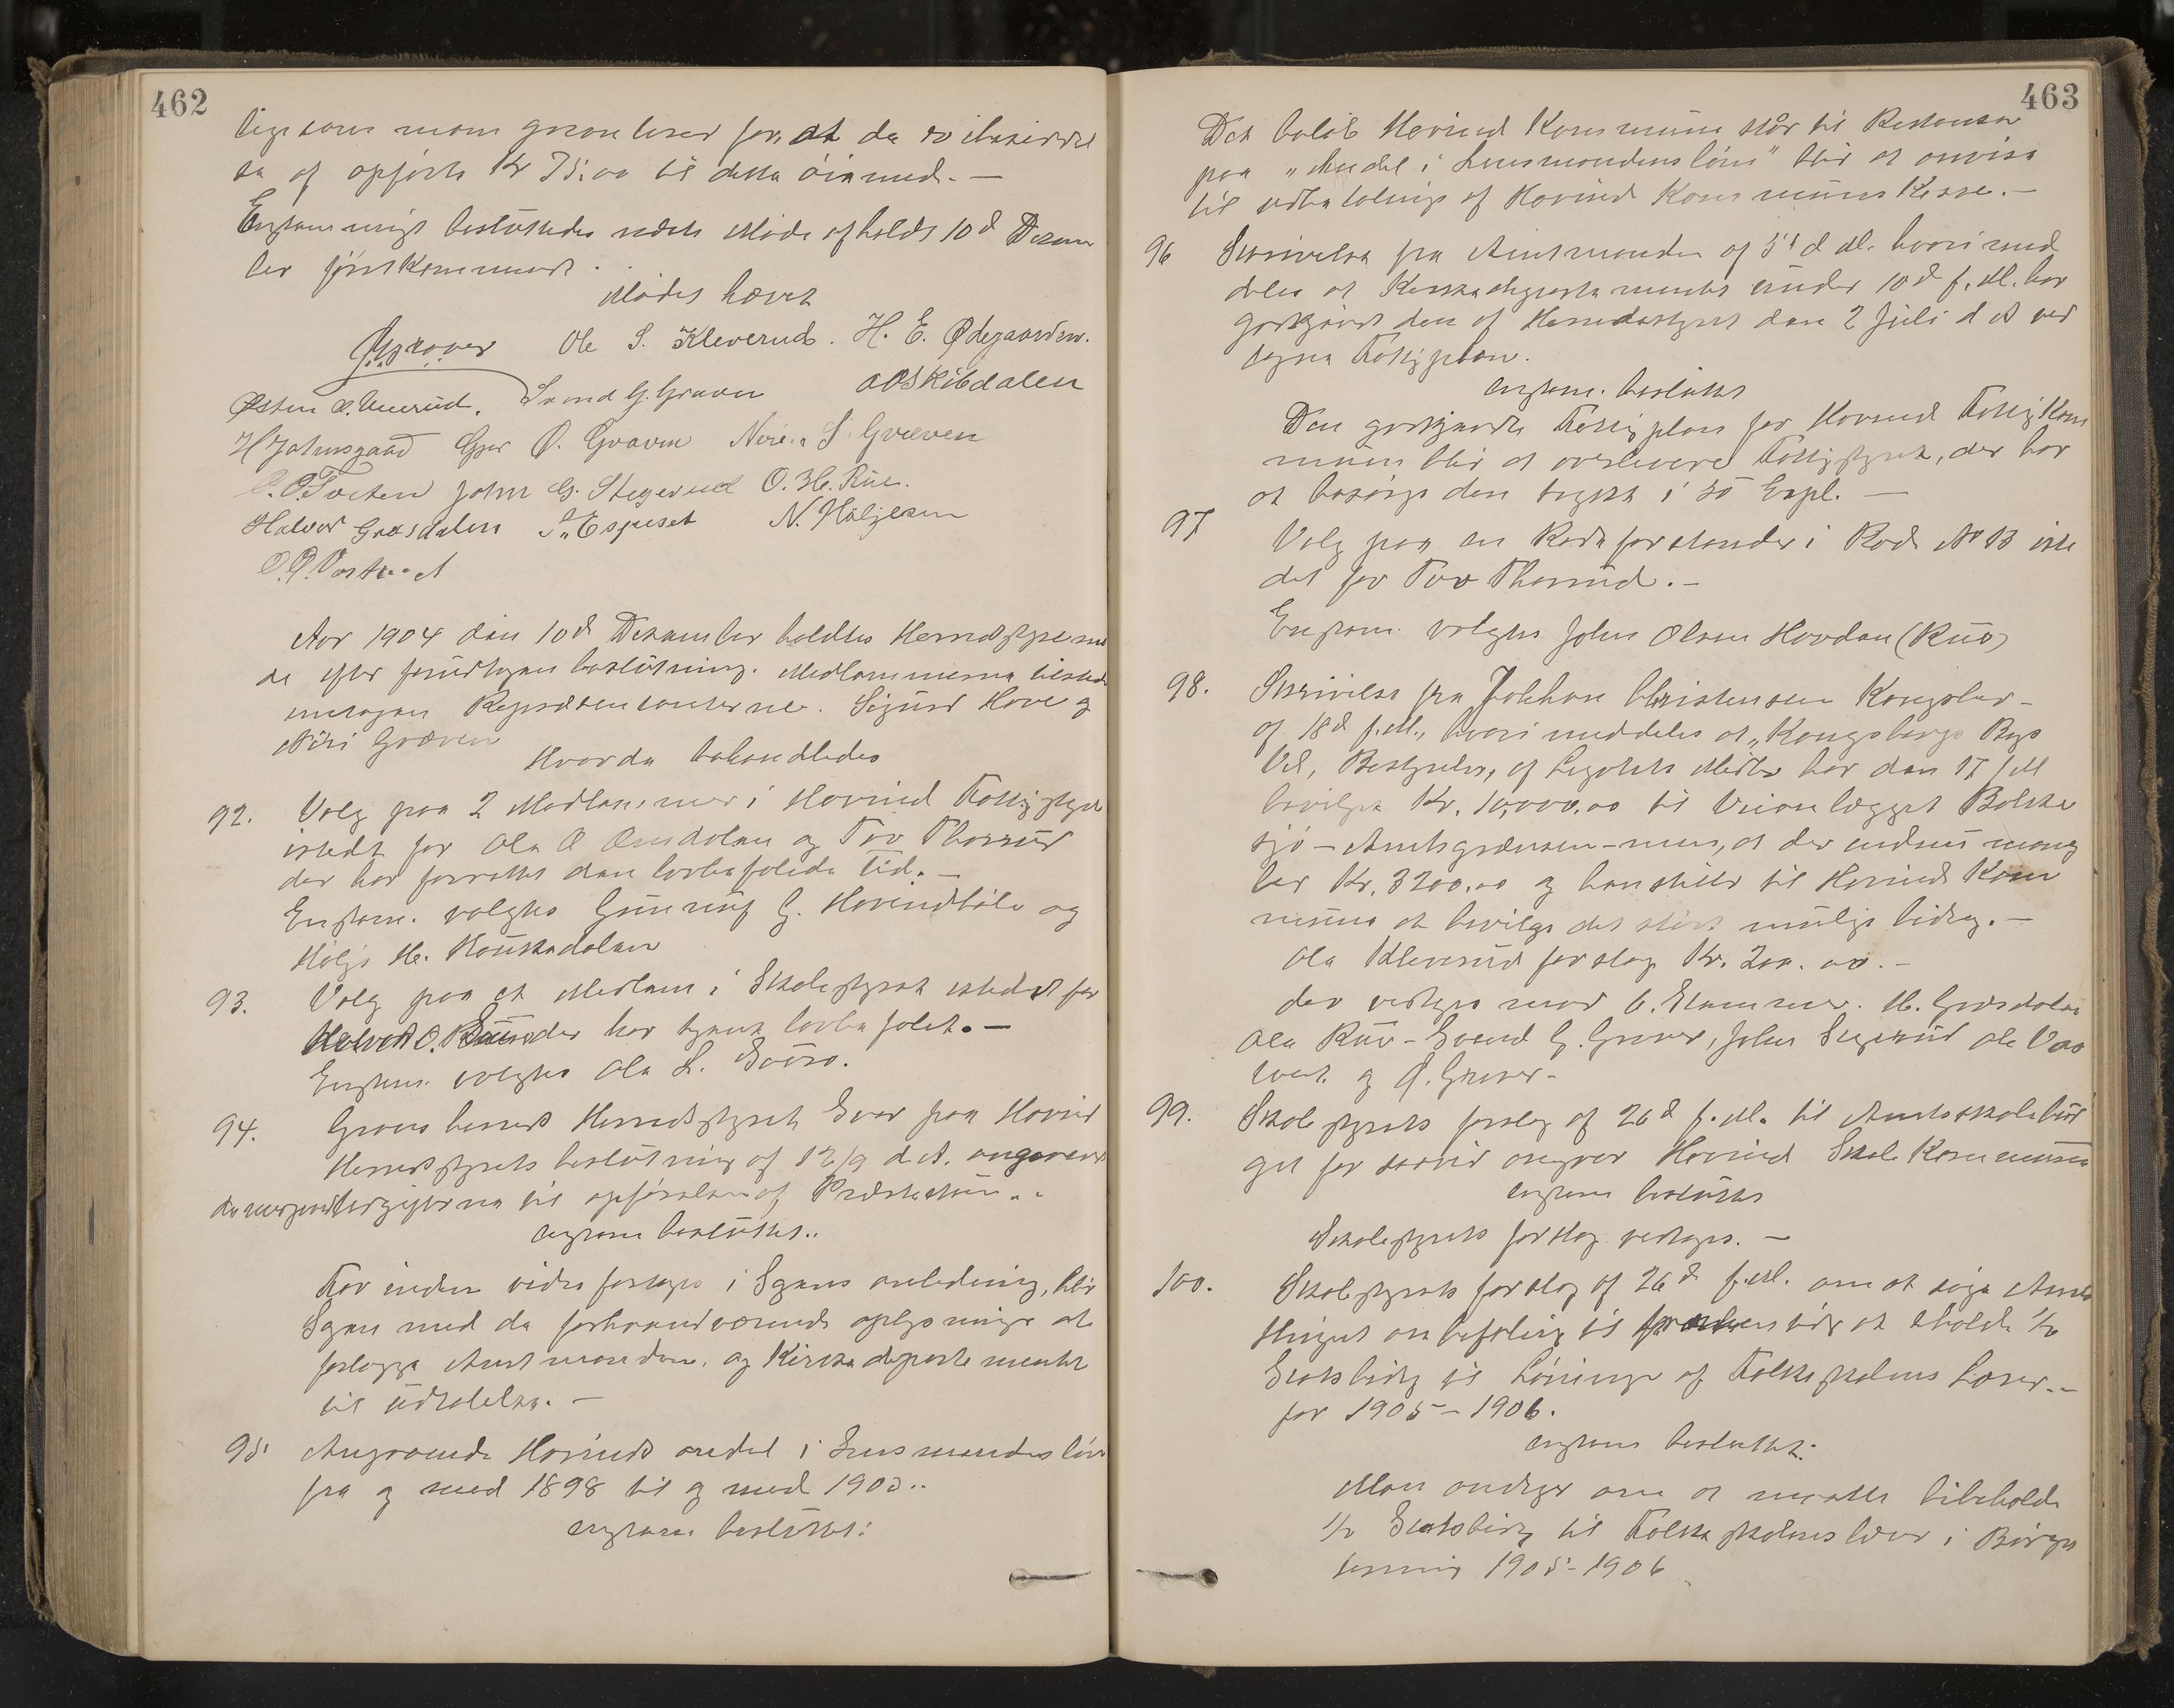 462
ligesom man
af opførte Kr 75.00 til dette øiemed. —
Enstemmigt besluttedes næste Møde afholdt 10d Decem
ber førstkommende.
Mødet hævet
Ole S. Kleverud. H. E. Ødegaarden.
Østen Svend G. Graven A O Skibdalen
H Jalmsgaard G. Graaven S. Græven
John G. Stegerud O. H. Rue.
Halvor Græsdalen Espeset N. Høljesen
Aar 1904 den 10d Dezember holdtes Herredsstyremø
de efter forudtagen beslutning. Medlemmerne tilstede
untagen Repræsentanterne. Sigurd Hove og
Niri Græven
Hvorda behandledes
92. Valg paa 2 Medlemmer i Hovind Fattigstyre
istedt for Ola O Omdalen og Tov Thorrud
der har forrettet den lovbefalede tid. —
Enstem. valgtes Gunnuf G. Hovindbøle og
Hølje H. Kouskadalen
93. Valg paa et Medlem i Skolestyret istedet for
Halvor O. der har tjent lovbefalet. —
Enstem. valgtes Ola L.
94. Gransherred Herredsstyrets Svar paa Hovind
Herredsstyrets beslutning af 12/9 d. A. angaaende
udgifterne til opførelsen af
enstem besluttet..
Før inden videre foretages i Sagens anledning, blir
Sagen med de forhaandværende oplysninger at
forlægge Amtmanden, og Kirkedepartementet
til Udtalelse. —
95 Angaaende Hovinds andel i Lensmandens løn
fra og med 1898 til og med 1903..
enstem besluttet:
463
Det beløb Hovind Kommune står til Restance
paa „Andel i Lensmandens løn" blir at anvise
til udbetaling af Hovind Kommunes Kasse. —
96 Skrivelse fra Amtmanden af 5t d M. hvori med
deles at Kirkedepartementet under 10d f. M. har
godkjendt den af Herredsstyret den 2 Juli d A ved
tagne Fattigplan.
enstem. besluttet
Den godkjendte Fattigplan for Hovind Fattigkom
mune blir at overlevere Fattigstyret, der har
at besørge den trykt i 50 Expl. —
97 Valg paa en Rodeforstander i Rode No 13 iste
det for Tov Thorrud. —
Enstem. valgtes John Olsen Hovdan (Rue)
98. Skrivelse fra Christensen Kongsber-
af 18d f. M., hvori meddeles at „Kongsbergs Bys
Vel, Bestyrelse, af Legatets Midler har den 17 f M
bevilget Kr. 10,000.00 til Veianlægget Bolke
sjø – Amtsgrænsen – men, at der endnu mang
ler Kr. 3200.00 og henstiller til Hovind Kom
mune at bevilge det størst mulige bidrag. —
Ola Kleverud forslag Kr. 200.00. —
der vedtages mod 6. Stemmer. H. Græsdalen
Ola Rue – Svend G. Graver, John Stegerud Ole
og Graver –
99. Skolestyrets forslag af 26d f. M. til Amtsskolebud
get for saavid angaar Hovind Skolekommune
enstem besluttet
Skolestyrets forslag vedtages. —
100. Skolestyrets forslag af 26d f. M. om at søge Amts
thinget om befaling til at beholde ½
Statsbidrag til Lønninger af Folkeskolens Lærer. –
for 1905 – 1906.
enstem besluttet:
Man andrager om at maatte bibeholde
½ Statsbidrag til Folkeskolens lærer i Budget
termin 1905 – 1906